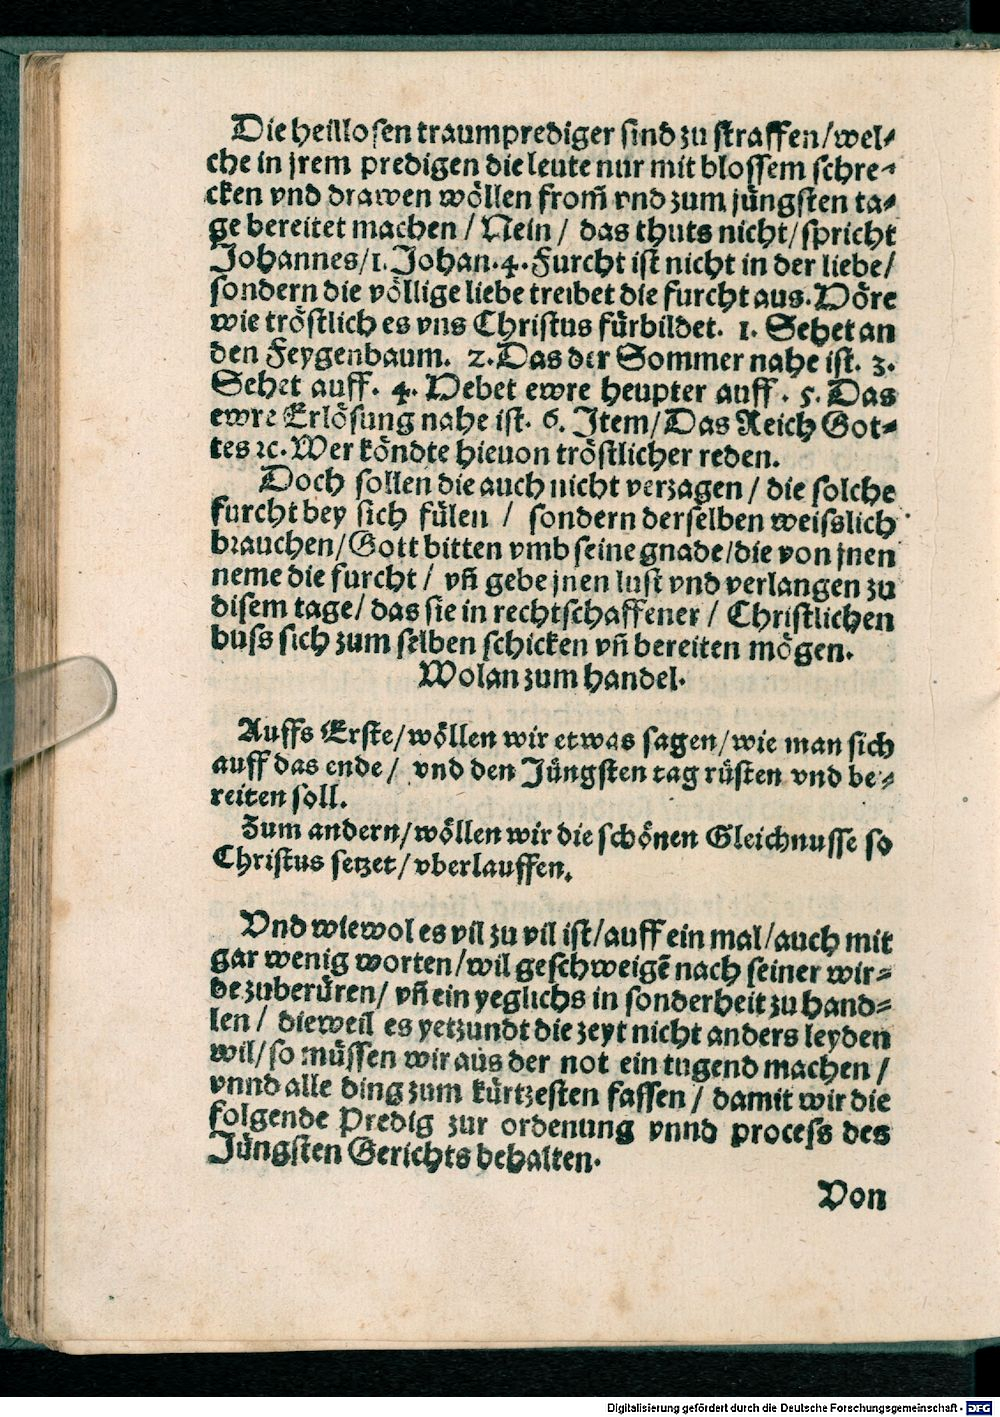 Die heillosen traumprediger sind zu straffen/wel-
che in jrem predigen die leute nur mit blossem schre-
cken vnd drawen wöllen from̄ vnd zum jüngsten ta-
ge bereitet machen / Nein / das thuts nicht/spricht
Johannes/1. Johan.4. Furcht ist nicht in der liebe/
sondern die völlige liebe treibet die furcht aus. Höre
wie tröstlich es vns Christus fürbildet. 1. Sehet an
den Feygenbaum. 2. Das der Sommer nahe ist. 3.
Sehet auff. 4. Hebet ewre heupter auff. 5. Das
ewre Erlösung nahe ist. 6. Item/Das Reich Got-
tes ꝛc. Wer köndte hieuon tröstlicher reden.
Doch sollen die auch nicht verzagen / die solche
furcht bey sich fülen / sondern derselben weisslich
brauchen/Gott bitten vmb seine gnade/die von jnen
neme die furcht / vn̄ gebe jnen lust vnd verlangen zu
disem tage/ das sie in rechtschaffener / Christlichen
buss sich zum selben schicken vn̄ bereiten mögen.
Wolan zum handel.
Auffs Erste/wöllen wir etwas sagen/wie man sich
auff das ende/ vnd den Jüngsten tag rüsten vnd be-
reiten soll.
Zum andern/wöllen wir die schönen Gleichnusse so
Christus setzet/vberlauffen.
Vnd wiewol es vil zu vil ist/auff ein mal/auch mit
gar wenig worten/wil geschweigē nach seiner wir-
de zuberüren/ vn̄ ein yeglichs in sonderheit zu hand-
len / dieweil es yetzundt die zeyt nicht anders leyden
wil/so müssen wir aus der not ein tugend machen /
vnnd alle ding zum kürtzesten fassen / damit wir die
folgende Predig zur ordenung vnnd process des
Jüngsten Gerichts behalten.
Von
Digitalisierung gefördert durch die Deutsche Forschungsgemeinschaft - DFG